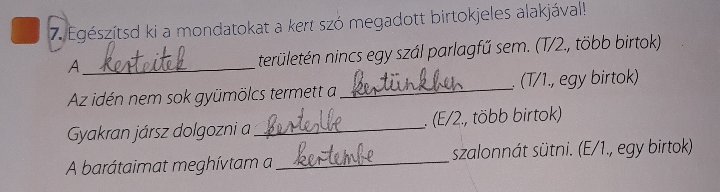 7. Egészítsd ki a mondatokat a kert szó megadott birtokjeles alakjával!
A kerteitek területén nincs egy szál parlagfű sem. (T/2., több birtok)
Az idén nem sok gyümölcs termett a kertünkben. (T/1., egy birtok)
Gyakran jársz dolgozni a . (E/2., több birtok)
A barátaimat meghívtam a kertembe szalonnát sütni. (E/1., egy birtok)